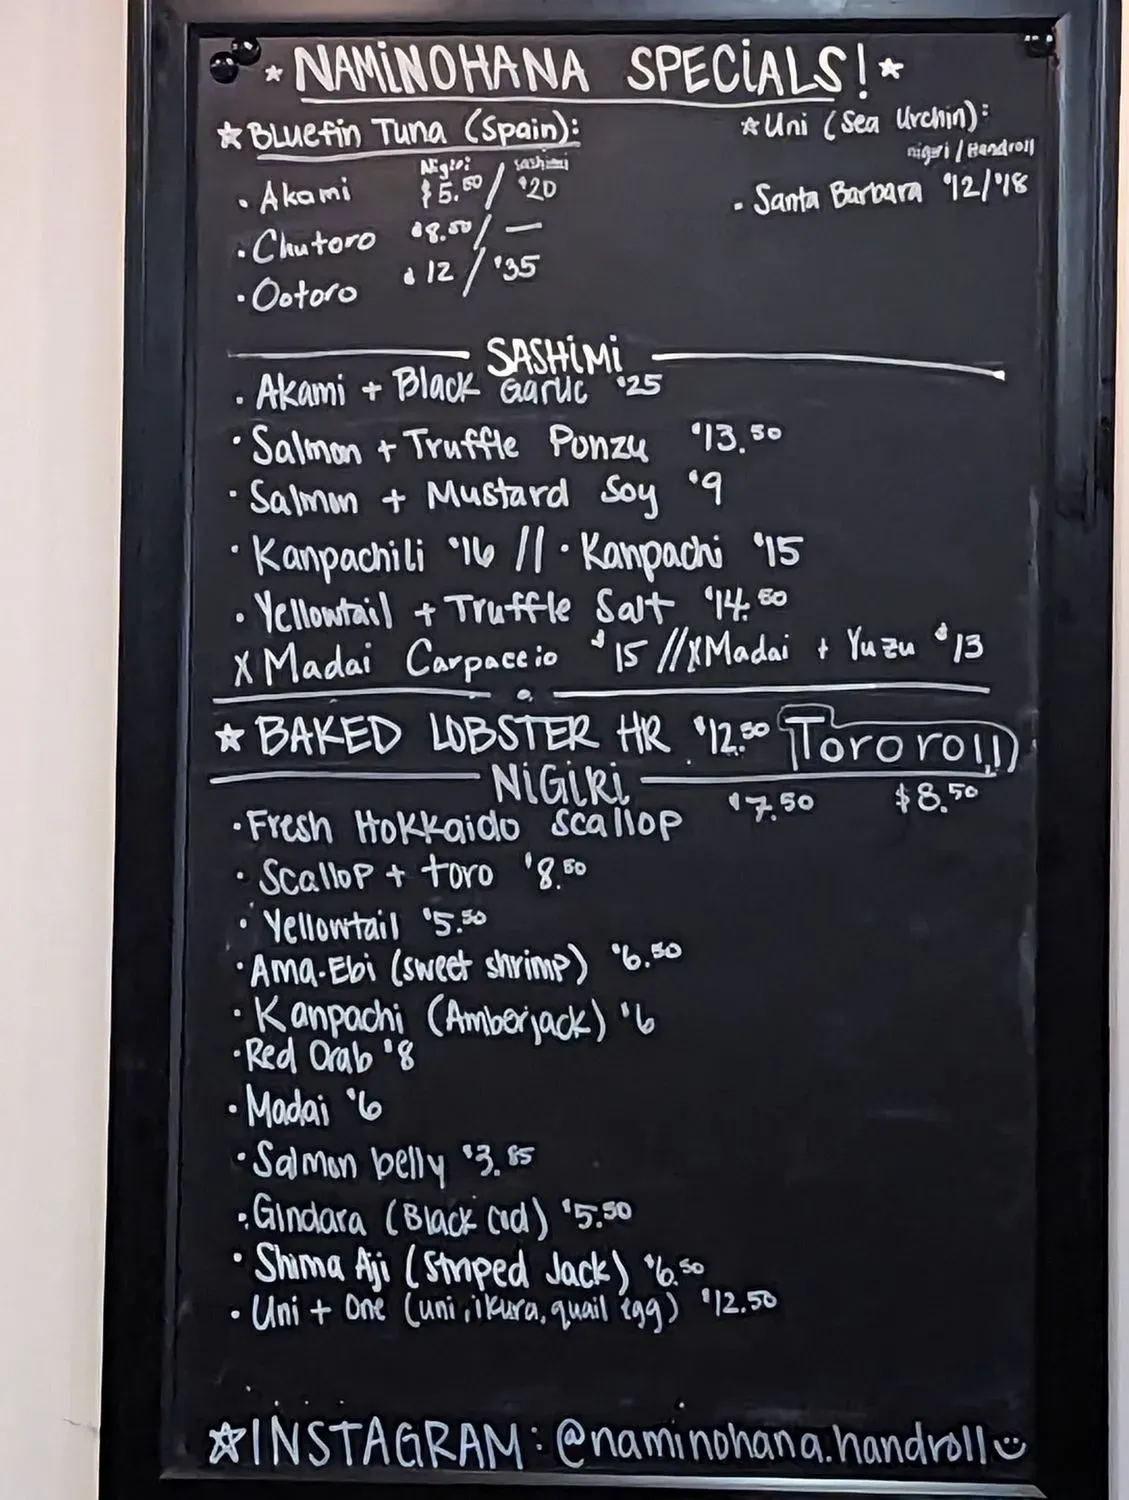 ★ NAMINOHANA SPECIALS! ★
★ Bluefin Tuna (Spain):
Nigiri / sashimi
· Akami $5.50 / $20
· Chutoro $8.50 / —
· Ootoro $12 / $35
★ Uni (Sea Urchin):
nigiri / Handroll
- Santa Barbara $12/$18
SASHIMI
· Akami + Black Garlic $25
· Salmon + Truffle Ponzu $13.50
· Salmon + Mustard Soy $9
· Kanpachili $16 // · Kanpachi $15
· Yellowtail + Truffle Salt $14.50
x Madai Carpaccio $15 // x Madai + Yuzu $13
★ BAKED LOBSTER HR $12.50 Toro roll
$8.50
NIGIRI
· Fresh Hokkaido Scallop $7.50
· Scallop + toro $8.50
· Yellowtail $5.50
· Ama-Ebi (sweet shrimp) $6.50
· Kanpachi (Amberjack) $6
· Red Crab $8
· Madai $6
· Salmon belly $3.85
· Gindara (Black Cod) $5.50
· Shima Aji (Striped Jack) $6.50
· Uni + One (uni, ikura, quail egg) $12.50
★ INSTAGRAM: @naminohana.handroll